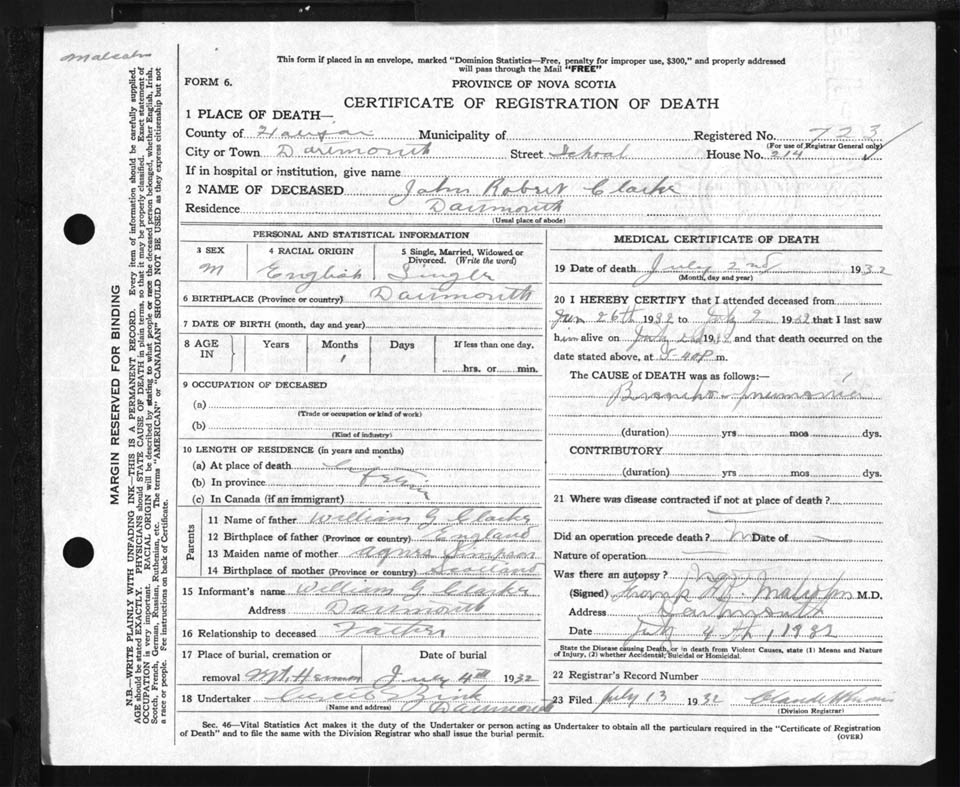 Malcolm
This form if placed in an envelope, marked "Dominion Statistics—Free, penalty for improper use, $300," and properly addressed
will pass through the Mail "FREE"
FORM 6.
PROVINCE OF NOVA SCOTIA
CERTIFICATE OF REGISTRATION OF DEATH
1 PLACE OF DEATH—
County of Halifax Municipality of Registered No. 723
(For use of Registrar General only)
City or Town Dartmouth Street School House No. 214
If in hospital or institution, give name
2 NAME OF DECEASED John Robert Clarke
Residence Dartmouth
(Usual place of abode)
PERSONAL AND STATISTICAL INFORMATION
3 SEX 4 RACIAL ORIGIN 5 Single, Married, Widowed or Divorced. (Write the word)
M English Single
6 BIRTHPLACE (Province or country) Dartmouth
7 DATE OF BIRTH (month, day and year)
8 AGE IN Years Months Days If less than one day,
1
hrs. or min.
9 OCCUPATION OF DECEASED
(a)
(Trade or occupation or kind of work)
(b)
(Kind of industry)
10 LENGTH OF RESIDENCE (in years and months)
(a) At place of death
(b) In province
(c) In Canada (if an immigrant)
Parents
11 Name of father William G Clarke
12 Birthplace of father (Province or country) England
13 Maiden name of mother Agnes Simpson
14 Birthplace of mother (Province or country) Scotland
15 Informant's name William G. Clarke
Address Dartmouth
16 Relationship to deceased Father
17 Place of burial, cremation or Date of burial
removal Mt. Hermon July 4th 1932
18 Undertaker Dartmouth
(Name and address)
MEDICAL CERTIFICATE OF DEATH
19 Date of death July 2nd 1932
(Month, day and year)
20 I HEREBY CERTIFY that I attended deceased from
Jun 26th 1932 to July 2 1932 that I last saw
him alive on July 2d 1932 and that death occurred on the
date stated above, at 8-40P m.
The CAUSE of DEATH was as follows:—
Broncho-pneumonia
(duration) yrs. mos. dys.
CONTRIBUTORY
(duration) yrs. mos. dys.
21 Where was disease contracted if not at place of death?
Did an operation precede death? No Date of —
Nature of operation —
Was there an autopsy? No
(Signed) Malcolm M.D.
Address Dartmouth
Date July 4th, 1932
State the Disease causing Death, or in death from Violent Causes, state (1) Means and Nature
of Injury, (2) whether Accidental, Suicidal or Homicidal.
22 Registrar's Record Number
23 Filed July 13 1932
(Division Registrar)
Sec. 46—Vital Statistics Act makes it the duty of the Undertaker or person acting as Undertaker to obtain all the particulars required in the "Certificate of Registration
of Death" and to file the same with the Division Registrar who shall issue the burial permit.
(OVER)
MARGIN RESERVED FOR BINDING
N.B.—WRITE PLAINLY WITH UNFADING INK—THIS IS A PERMANENT RECORD. Every item of information should be carefully supplied.
AGE should be stated EXACTLY. PHYSICIANS should STATE CAUSE OF DEATH in plain terms, so that it may be properly classified. Exact statement of
OCCUPATION is very important. RACIAL ORIGIN will be described by stating to what people or race the deceased person belonged, whether English, Irish,
Scotch, French, German, Russian, Ruthenian, etc. The terms "AMERICAN" or "CANADIAN" SHOULD NOT BE USED as they express citizenship but not
a race or people. See instructions on back of Certificate.